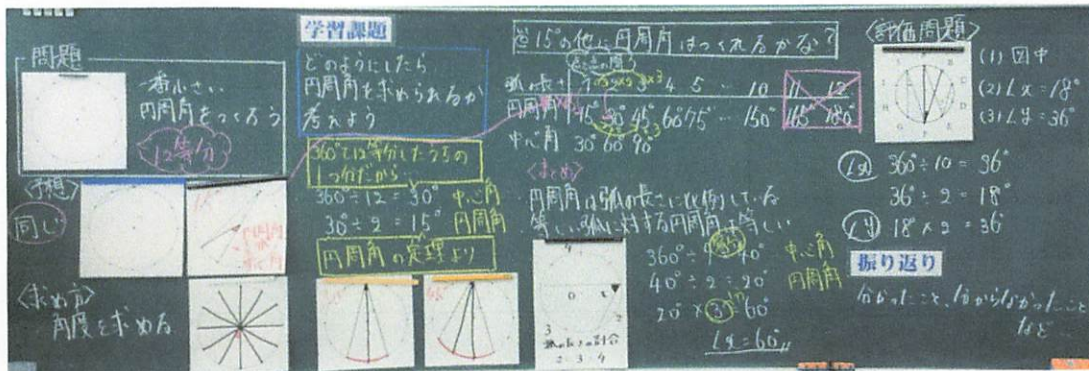 問題
一番小さい
円周角をつくろう
12等分
〈予想〉
同じ
〈求め方〉
角度を求める
学習課題
どのようにしたら
円周角を求められるか
考えよう
360°を12等分したうちの
1つ分だから…
360°÷12=30° 中心角
30°÷2=15° 円周角
円周角の定理より
15°の他に円周角はつくれるかな?
弧の長さ 1 2 3 4 5 … 10 11 12
円周角 15° 30° 45° 60° 75° … 150° 165° 180°
中心角 30° 60° 90°
〈まとめ〉
円周角は弧の長さに比例している
等しい弧に対する円周角は等しい
弧の長さの割合
2:3:4
360°÷9=40° 中心角
40°÷2=20° 円周角
20°×3=60°
∠x=60°
〈評価問題〉
(1) 図中
(2) ∠x=18°
(3) ∠y=36°
∠x 360°÷10=36°
36°÷2=18°
∠y 18°×2=36°
振り返り
分かったこと、分からなかったこと
など